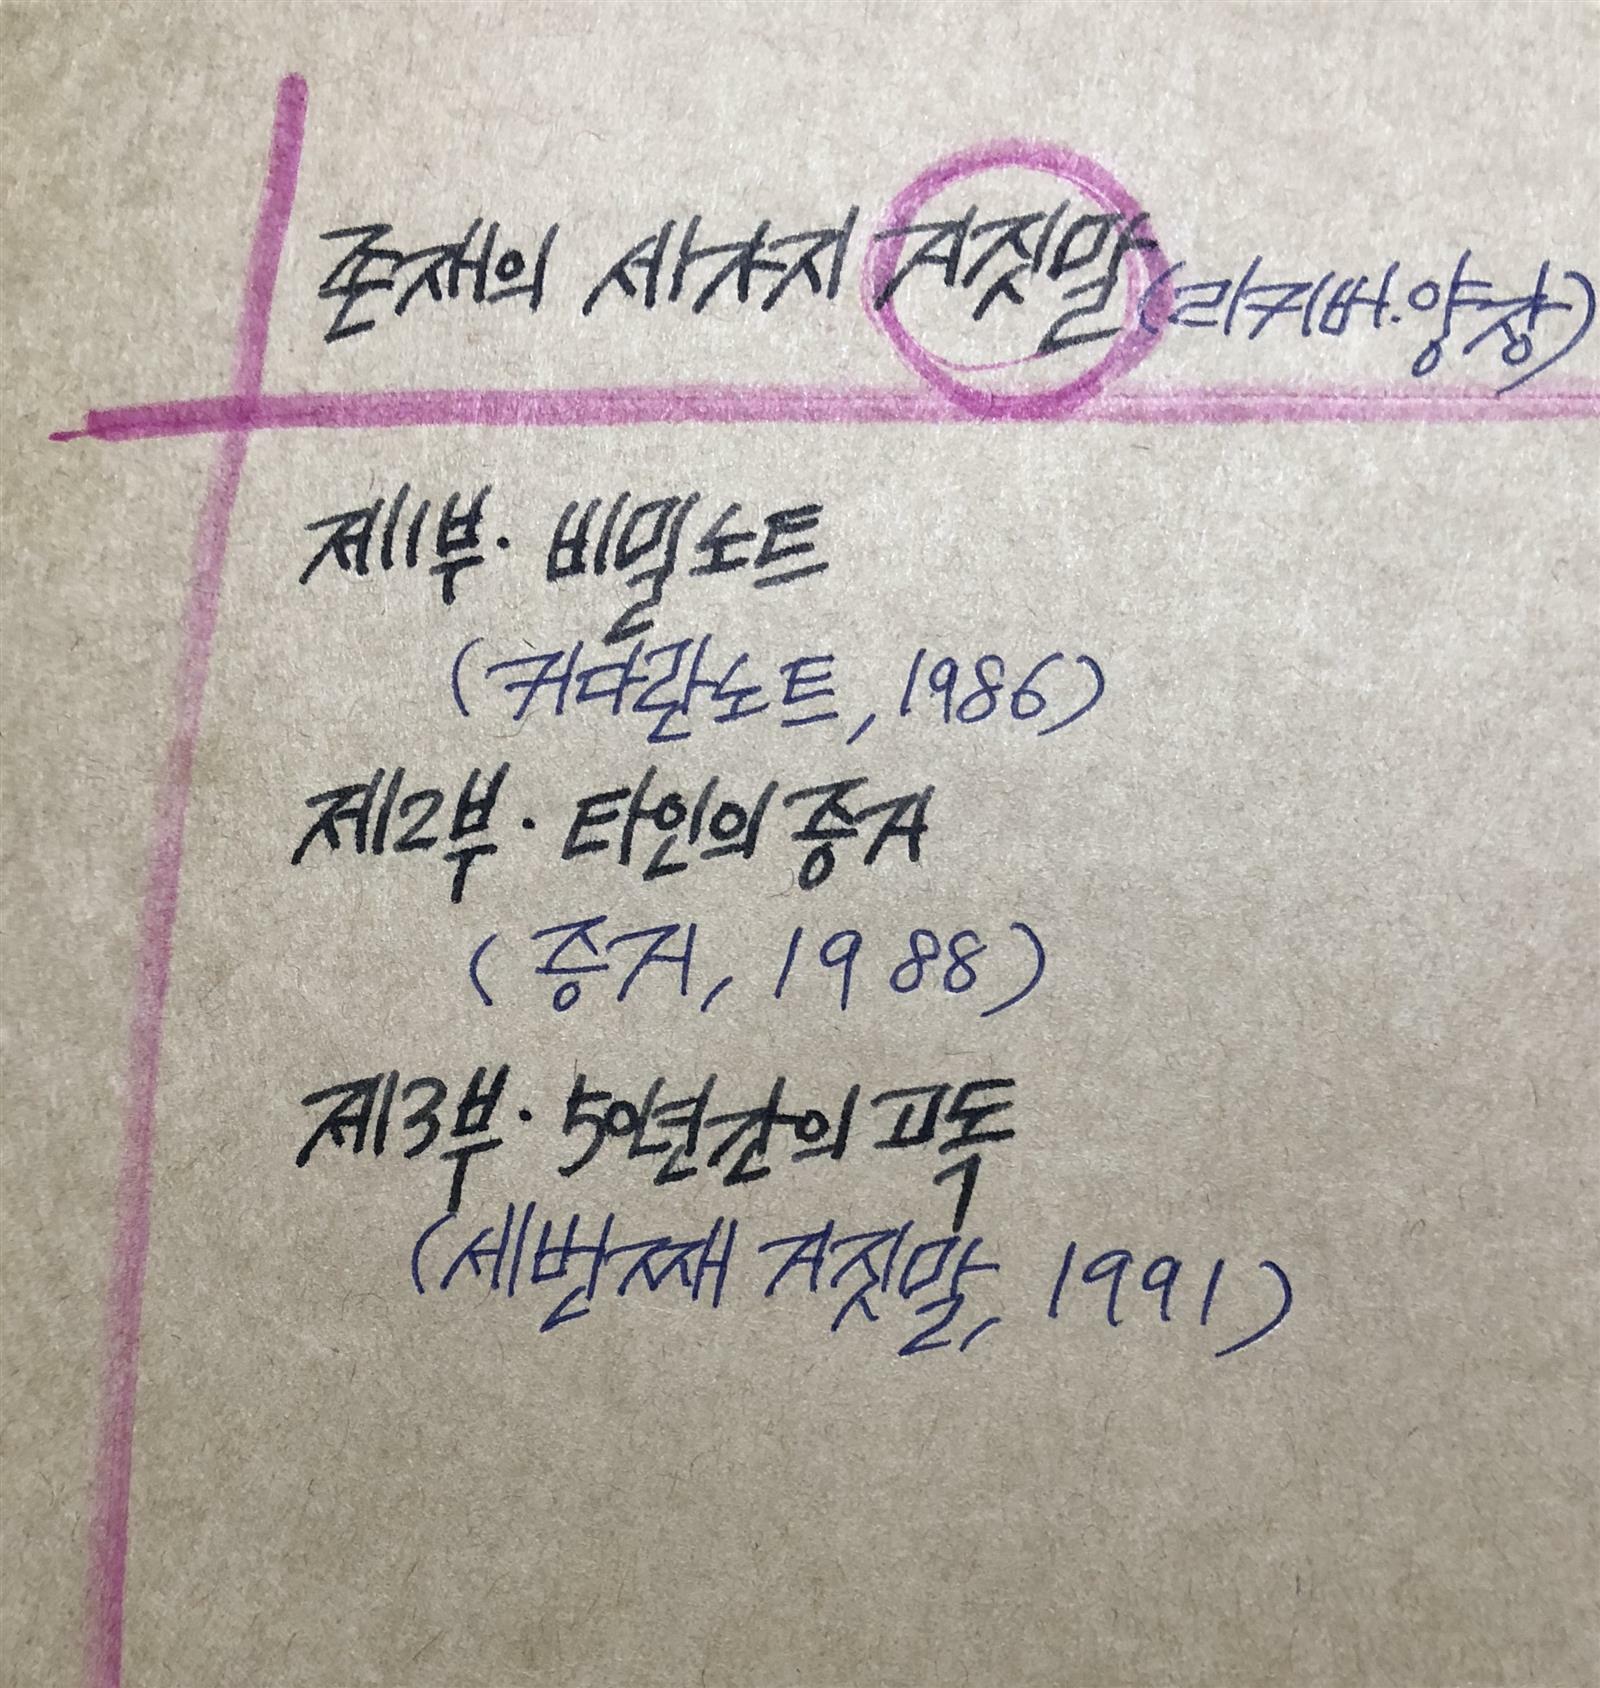 존재의 세가지 거짓말(리커버.양장)
제1부· 비밀노트
(커다란노트, 1986)
제2부· 타인의 증거
(증거, 1988)
제3부· 50년간의 고독
(세번째 거짓말, 1991)